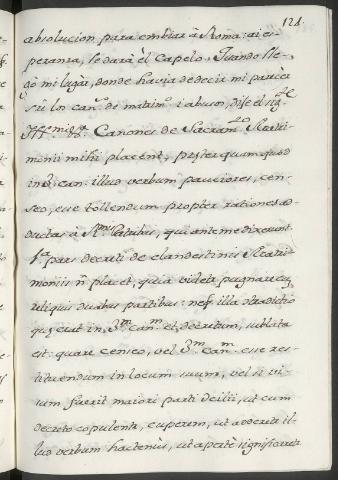 121.
absolucion para embiar à Roma: ai es-
peranza, se dará èl Capelo. Quando lle-
gò mi lugàr, donde havia de decir mi parecèr
sobre los can.s de matrim.o i abusos, dixe el sig.te
Canones de Sacram.to Matri-
monii mihi placent, præter quam quod
in can. illud verbum pauciores, cen-
seo, esse tollendum propter rationes ad-
ductas à Patribus, qui ante me dixerunt.
1.a pars decreti de clandestinis Matri-
moniis ñ placet, quia videtur pugnare cum
reliquis duabus partibus: neq. illa
quæ erat in 3.m can.m et, decretum, sublata
est: quare censeo, vel 3.m can.m esse res-
tituendum in locum suum, vel si vi-
sum fuerit maiori parti concilii, ut cum
decreto copulentur, cuperem, ut
lud verbum hactenùs, ut apertè significaretur